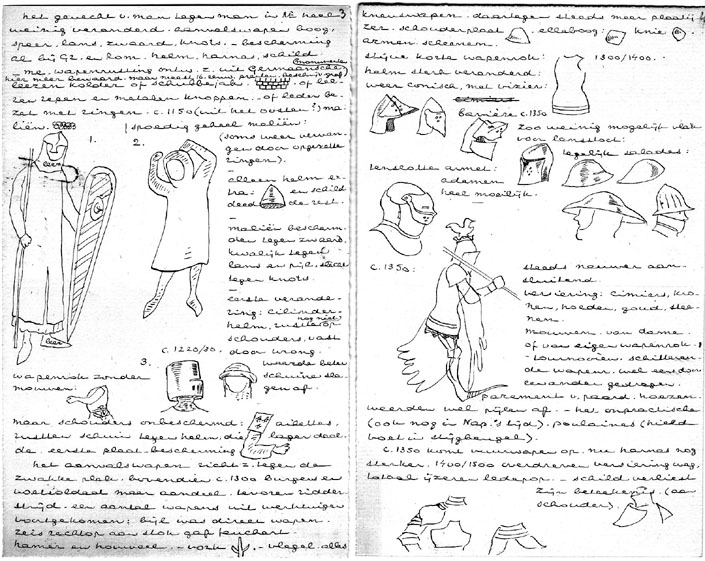 het gevecht v. man tegen man in M. heel 3
weinig veranderd. aanvalswapen boog,
speer, lans, zwaard, knots. - bescherming
al bij Gr. en Rom. helm, harnas, schild
- me. wapenrusting onts. z. uit Germaansche
hier meer bewaard. maar meest 16. eeuw.
leeren kolder of schubbejas. of lee-
ren repen er metalen knoppen. of leder be-
zet met ringen. c. 1150 (uit het oosten?) ma-
liën.
1.
2.
spoedig geheel maliën:
(soms weer vervan-
gen door opgezette
ringen).
-
alleen helm ex-
tra: en schild
deed de rest.
-
maliën bescherm-
den tegen zwaard,
kwalijk tegen
lans en pijl,
tegen knots.
-
eerste verande-
ring: cilinder-
nog niet
helm, rustte op
schouders, vast
c. 1220/30. door wrong.
3. weerde beter
schuine sla-
gen af.
wapenrok zonder
mouwen.
maar schouders onbeschermd: ailettes,
rustten schuin tegen helm, die lager daal-
de. eerste plaat-bescherming
het aanvalswapen richt z. tegen de
zwakke plek. bovendien c. 1300 burgers en
voetsoldaat meer aandeel. tevoren ridder-
strijd. een aantal wapens uit werktuigen
voortgekomen: bijl was direct wapen.
zeis rechtop aan stok gaf fauchart.
hamer en houweel. - vork - vlegel. alles
kneuswapen. daartegen steeds meer plaatij- 4
zer. schouderplaat ellebogg: knie
armen scheenen.
stijve korte wapenrok: 1300/1400.
helm sterk veranderd:
weer conisch, met vizier:
Barrière c. 1350
zoo weinig mogelijk vlak
voor lansstoot:
tegelijk salades:
lenslotte armet:
ademen
heel moeilijk.
c. 1350:
steeds nauwer aan-
sluitend
versiering: cimiers, kro-
nen, hoeden, goud, stee-
nen.
mouwen van dame.
of van eigen wapenrok.
- tournooien. schitteren-
de wapen. wel eens door
een ander gedragen.
parement v. paard, hoezen.
weerden wel pijlen af. - het onpractische
(ook nog in Nap.'s tijd). poulaines (hield
voet in stijgbeugel).
c. 1350 komt vuurwapen op. nu harnas nog
sterker. 1400/1500 overdreven versiering weg.
totaal ijzeren ledepop. - schild verliest
zijn beteekenis. (aan
schouder).